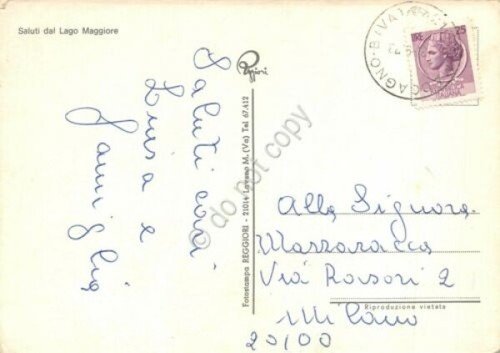 Saluti dal Lago Maggiore
Saluti cari
Luisa e
famiglia
Reggiori
Fotostampa REGGIORI - 21014 Laveno M. (Va) Tel 67.412
do not copy
25
Alla Signora
Mazzaracca
Via Rasori 2
Milano
20100
Riproduzione vietata